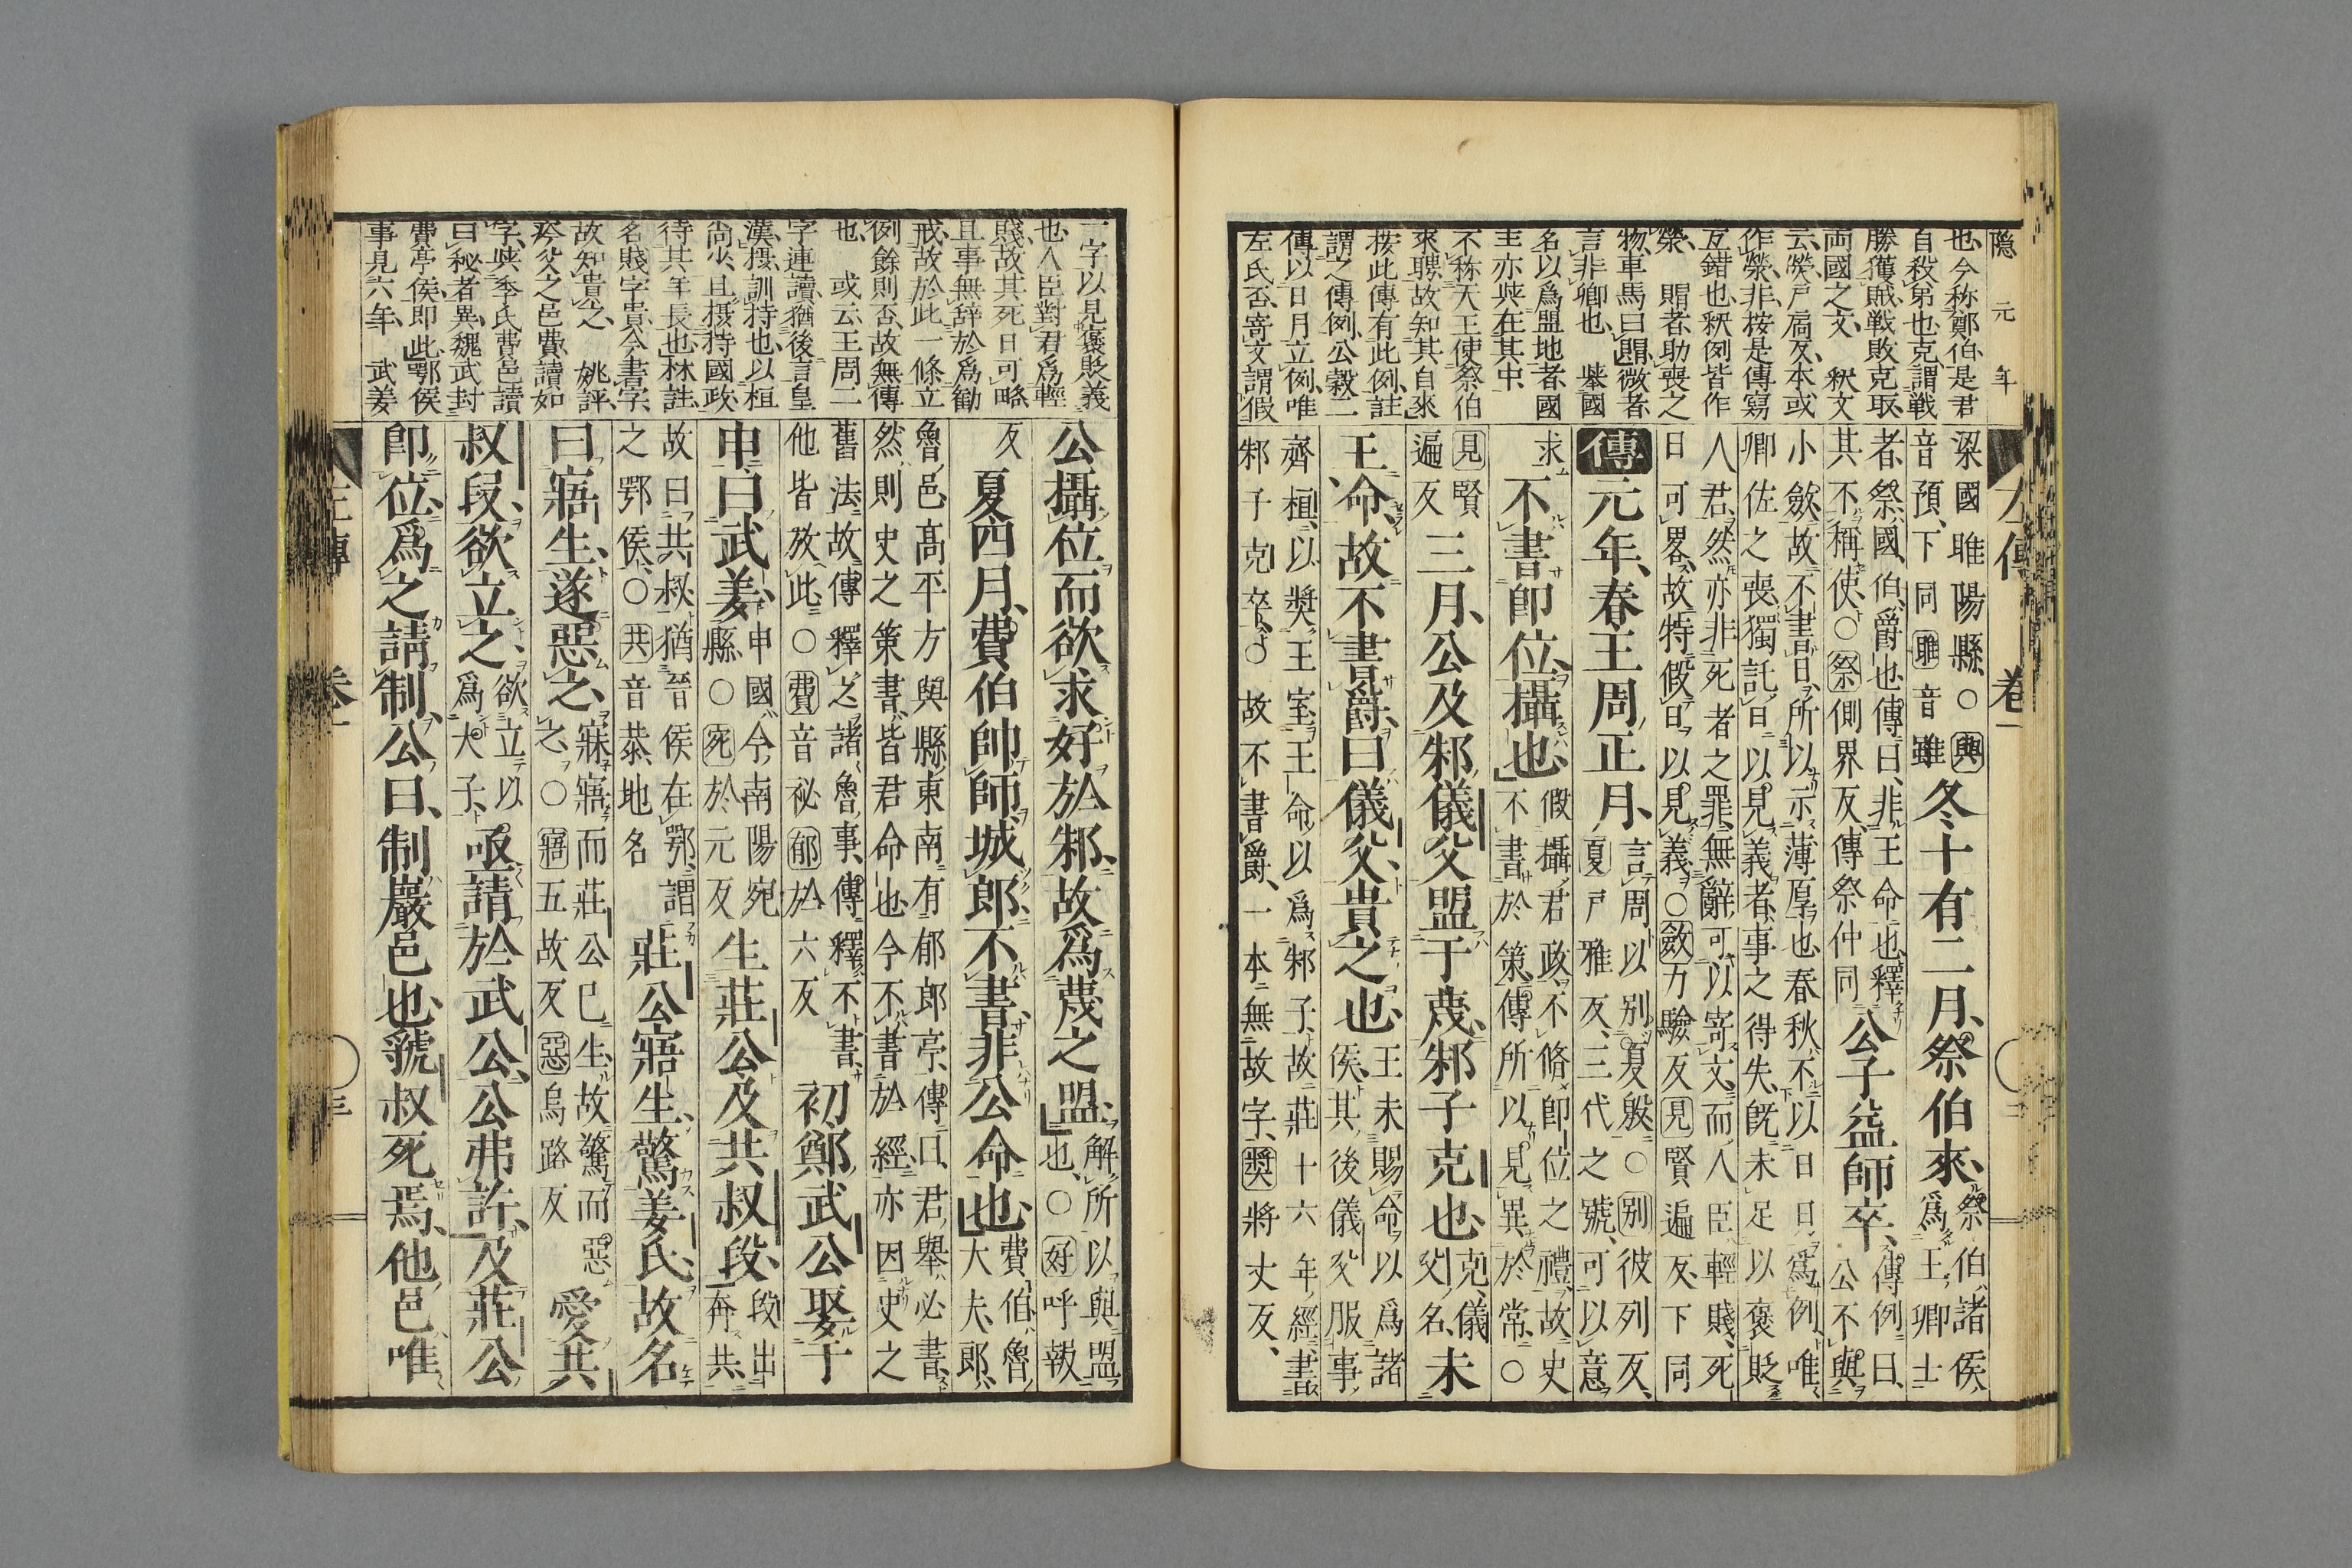 隠元年
也今称鄭伯是君
自殺弟也克謂戦
勝獲賊戦敗克取
両國之文 釈文
云滎戸扃反本或
作榮非按是傳寫
互錯也釈例皆作
滎 賵者助喪之
物車馬曰賵微者
言非卿也 挙國
名以爲盟地者國
主亦與在其中
不称天王使祭伯
來聘故知其自來
按此傳有此例註
謂之傳例公穀二
傳以日月立例唯
左氏否寄文謂假
左傳 卷一
梁國睢陽縣○與
音預下同睢音雖
冬十有二月祭伯來
祭伯諸侯
爲王卿士
者祭國伯爵也傳曰非王命也釋
其不稱使○祭側界反傳祭仲同
公子益師卒
傳例曰
公不與
小斂故不書日所以示薄厚也春秋不以日月爲例唯
卿佐之喪獨託日以見義者事之得失旣未足以褒貶
人君然亦非死者之罪無辭可以寄文而人臣輕賤死
日可畧故特假日以見義○斂力驗反見賢遍反下同
傳元年春王周正月
言周以別夏殷○別彼列反
夏戸雅反三代之號可以意
求
不書卽位攝也
假攝君政不脩卽位之禮故史
不書於策傳所以見異於常○
見賢
遍反
三月公及邾儀父盟于蔑邾子克也
克儀
父名
未
王命故不書爵曰儀父貴之也
王未賜命以爲諸
侯其後儀父服事
齊桓以奬王室王命以爲邾子故莊十六年經書
邾子克卒○故不書爵一本無故字奬將丈反
一字以見褒貶義
也人臣對君爲輕
賤故其死日可略
且事無辞於爲勧
戒故於此一條立
例餘則否故無傳
也 或云王周二
字連讀猶後言皇
漢摂訓持也以桓
尚少且摂持國政
待其年長也林註
名賤字貴今書字
故知貴之 姚評
夸父之邑費讀如
字與季氏費邑讀
曰秘者異魏武封
費亭侯即此鄂侯
事見六年 武姜
公攝位而欲求好於邾故爲蔑之盟
解所以與盟
也○好呼報
反
夏四月費伯帥師城郎不書非公命也
費伯魯
大夫郎
魯邑高平方與縣東南有郁郎亭傳曰君舉必書
然則史之策書皆君命也今不書於經亦因史之
舊法故傳釋之諸魯事傳釋不書
他皆放此○費音祕郁於六反
初鄭武公娶于
申曰武姜
申國今南陽宛
縣○宛於元反
生莊公及共叔段
段出
奔共
故曰共叔猶晉侯在鄂謂
之鄂侯○共音恭地名
莊公寤生驚姜氏故名
曰寤生遂惡之
寐寤而莊公已生故驚而惡
之○寤五故反惡烏路反
愛共
叔段欲立之
欲立以
爲大子
亟請於武公公弗許及莊公
卽位爲之請制公曰制巖邑也虢叔死焉他邑唯
左傳 卷一 三